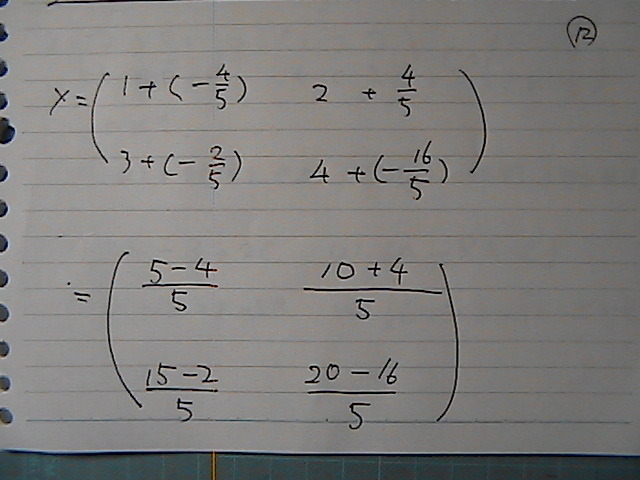 ⑫
Y = ( 1 + (-4/5) 2 + 4/5
3 + (-2/5) 4 + (-16/5) )
= ( (5-4)/5 (10+4)/5
(15-2)/5 (20-16)/5 )